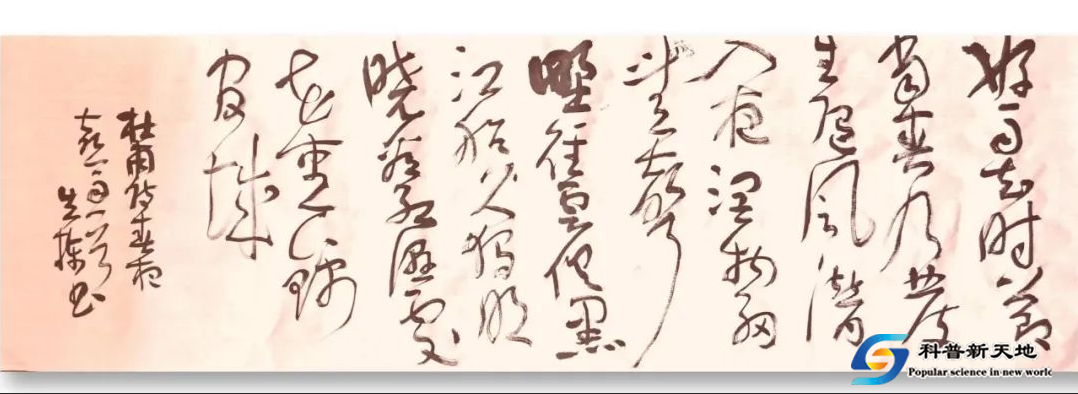 好雨知时节
當春乃发
生随风潜
入夜润物细
无声
野径云俱黑
江船火独明
晓看红湿处
花重锦
官城
杜甫诗春夜
喜雨一首
书
科普新天地
Popular science in new world